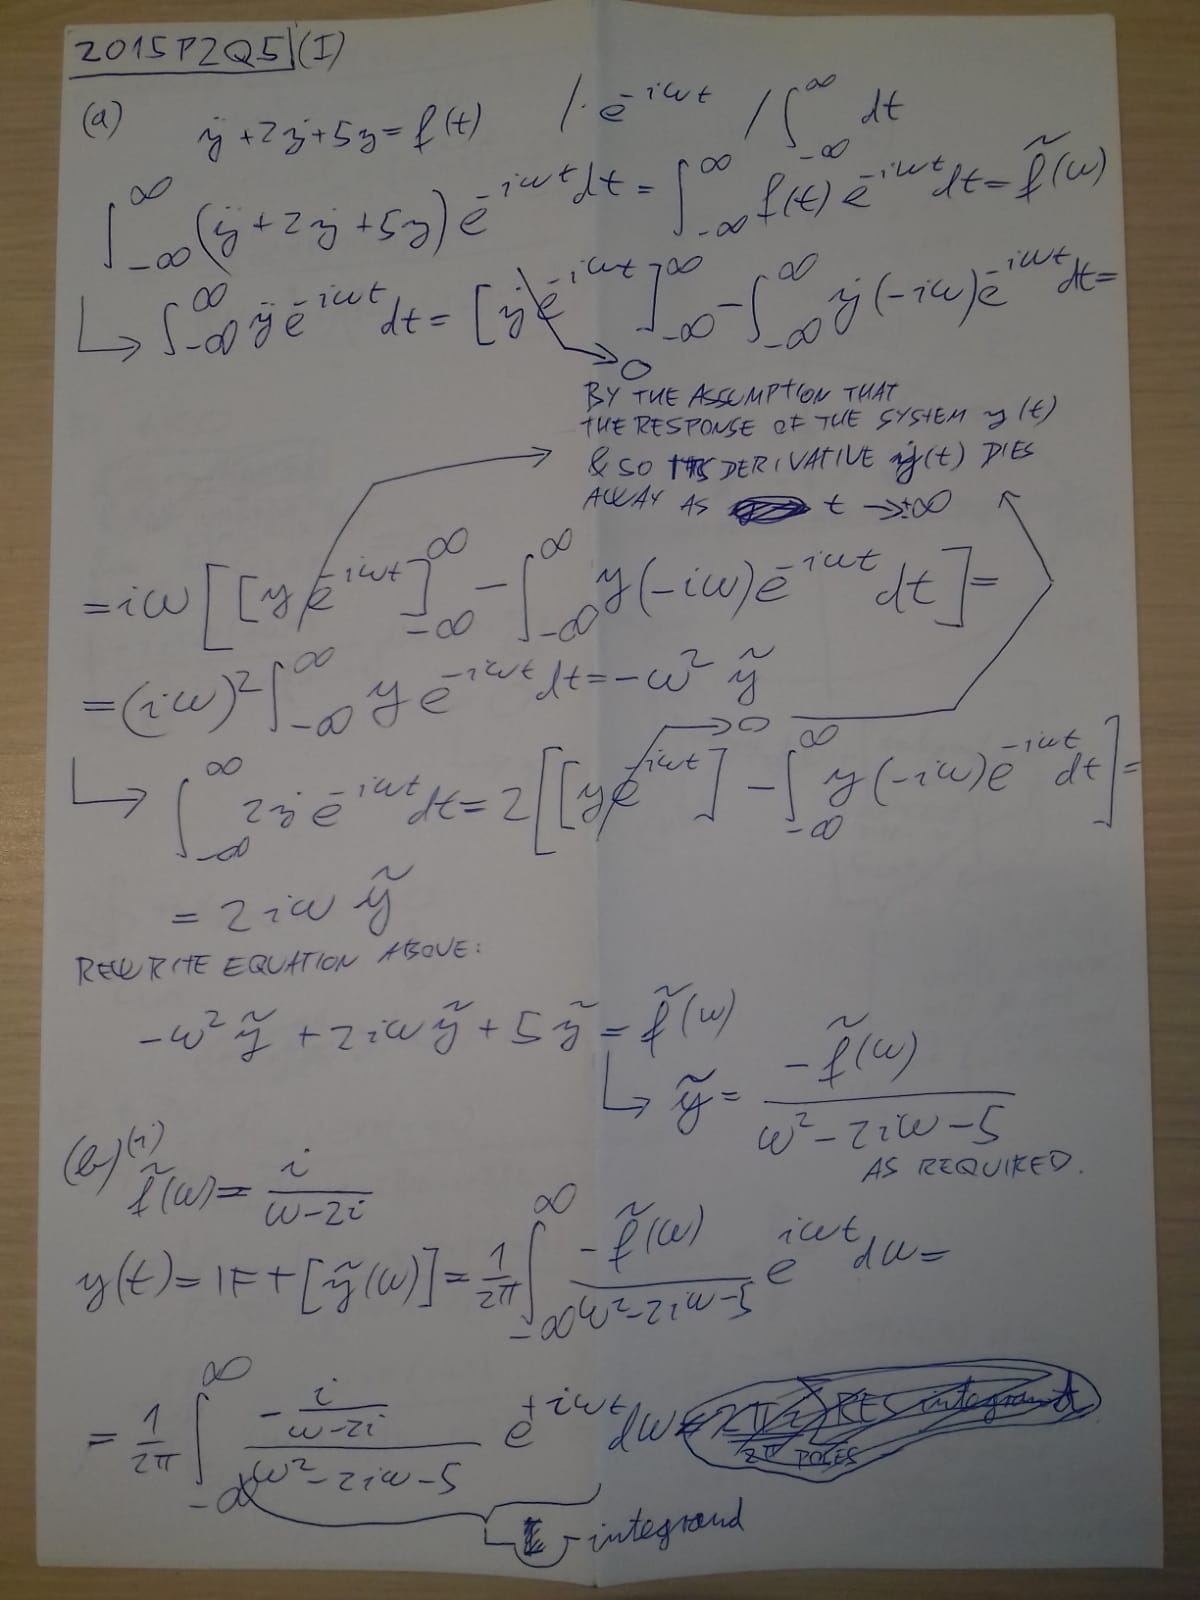 2015P2Q5 (I)
(a) ÿ + 2ẏ + 5y = f(t) / · e^{-iωt} / ∫_{-∞}^{∞} dt
∫_{-∞}^{∞} (ÿ + 2ẏ + 5y) e^{-iωt} dt = ∫_{-∞}^{∞} f(t) e^{-iωt} dt = f̃(ω)
↳ ∫_{-∞}^{∞} ÿ e^{-iωt} dt = [ẏ e^{-iωt}]_{-∞}^{∞} - ∫_{-∞}^{∞} ẏ (-iω) e^{-iωt} dt =
→ 0
BY THE ASSUMPTION THAT
THE RESPONSE OF THE SYSTEM y(t)
& SO ITS DERIVATIVE ẏ(t) DIES
AWAY AS t → ±∞
= iω [[y e^{-iωt}]_{-∞}^{∞} - ∫_{-∞}^{∞} y (-iω) e^{-iωt} dt] =
= (iω)² ∫_{-∞}^{∞} y e^{-iωt} dt = -ω² ỹ
↳ ∫_{-∞}^{∞} 2ẏ e^{-iωt} dt = 2 [[y e^{-iωt}] → 0 - ∫_{-∞}^{∞} y (-iω) e^{-iωt} dt] =
= 2iω ỹ
REWRITE EQUATION ABOVE:
-ω² ỹ + 2iω ỹ + 5 ỹ = f̃(ω)
↳ ỹ = -f̃(ω) / (ω² - 2iω - 5)
AS REQUIRED.
(b) (i) f̃(ω) = i / (ω - 2i)
y(t) = IFT [ỹ(ω)] = 1/2π ∫_{-∞}^{∞} -f̃(ω) / (ω² - 2iω - 5) e^{iωt} dω =
= 1/2π ∫_{-∞}^{∞} (-i / (ω - 2i)) / (ω² - 2iω - 5) e^{+iωt} dω
integrand